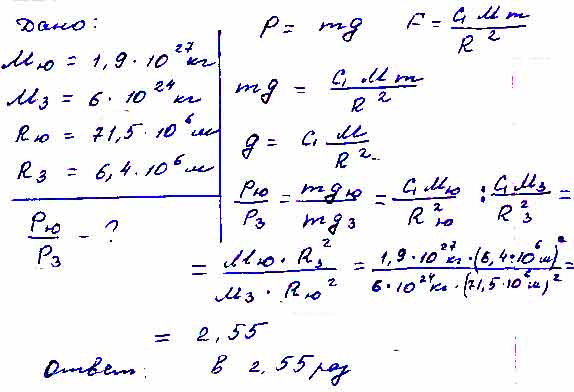 Дано:
Mю = 1,9 · 10²⁷ кг
Mз = 6 · 10²⁴ кг
Rю = 71,5 · 10⁶ м
Rз = 6,4 · 10⁶ м
Pю/Pз - ?
P = mg F = G M m / R²
mg = G M m / R²
g = G M / R²
Pю/Pз = mgю/mgз = G Mю / R²ю : G Mз / R²з =
= Mю · Rз² / Mз · Rю² = 1,9 · 10²⁷ кг · (6,4 · 10⁶ м)² / 6 · 10²⁴ кг · (71,5 · 10⁶ м)² =
= 2,55
Ответ: в 2,55 раз